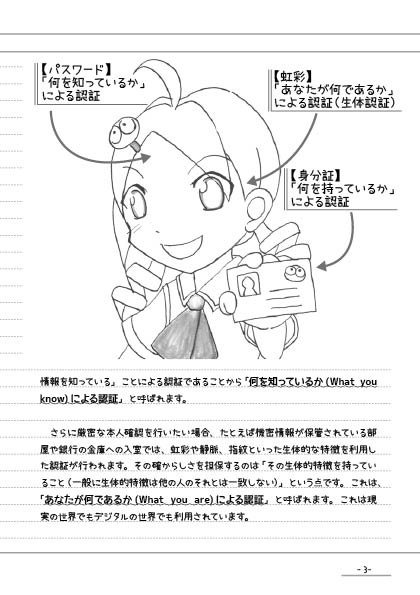 【パスワード】
「何を知っているか」
による認証
【虹彩】
「あなたが何であるか」
による認証（生体認証）
【身分証】
「何を持っているか」
による認証
情報を知っている」ことによる認証であることから「何を知っているか (What you
know) による認証」と呼ばれます。
さらに厳密な本人確認を行いたい場合、たとえば機密情報が保管されている部
屋や銀行の金庫への入室では、虹彩や静脈、指紋といった生体的な特徴を利用し
た認証が行われます。その確からしさを担保するのは「その生体的特徴を持ってい
ること（一般に生体的特徴は他の人のそれとは一致しない）」という点です。これは、
「あなたが何であるか (What you are) による認証」と呼ばれます。これは現
実の世界でもデジタルの世界でも利用されています。
- 3-